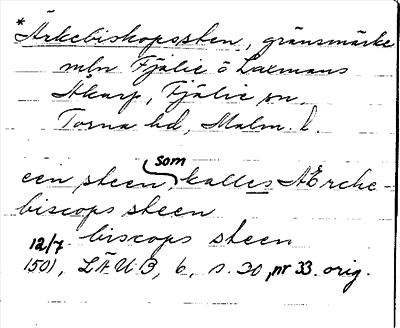 *Ärkebiskopssten, gränsmärke
mln Fjälie o Laxmans
Åkarp, Fjälie sn,
Torna hd, Malm. l.
een steen som kalles AErche-
biscops steen
biscops steen
12/7 1501, LÄUB, 6, s. 30, nr 33. orig.